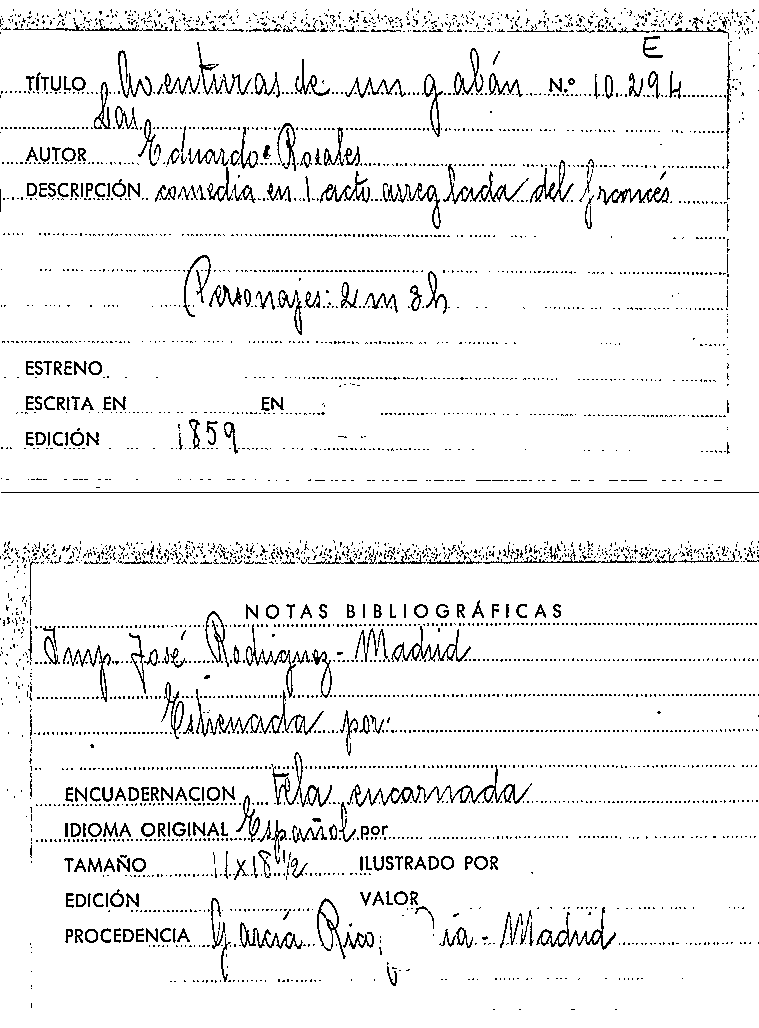 E
TÍTULO Aventuras de un gabán N.º 10.294
Las
AUTOR Eduardo Rosales
DESCRIPCIÓN comedia en 1 acto arreglada del francés
Personajes: 2 m 3 h
ESTRENO
ESCRITA EN EN
EDICIÓN 1859
NOTAS BIBLIOGRÁFICAS
Imp. José Rodriguez - Madrid
Estrenada por:
ENCUADERNACION Tela encarnada
IDIOMA ORIGINAL Español por
TAMAÑO 11 x 18 1/2 ILUSTRADO POR
EDICIÓN VALOR
PROCEDENCIA García Rico, - Madrid